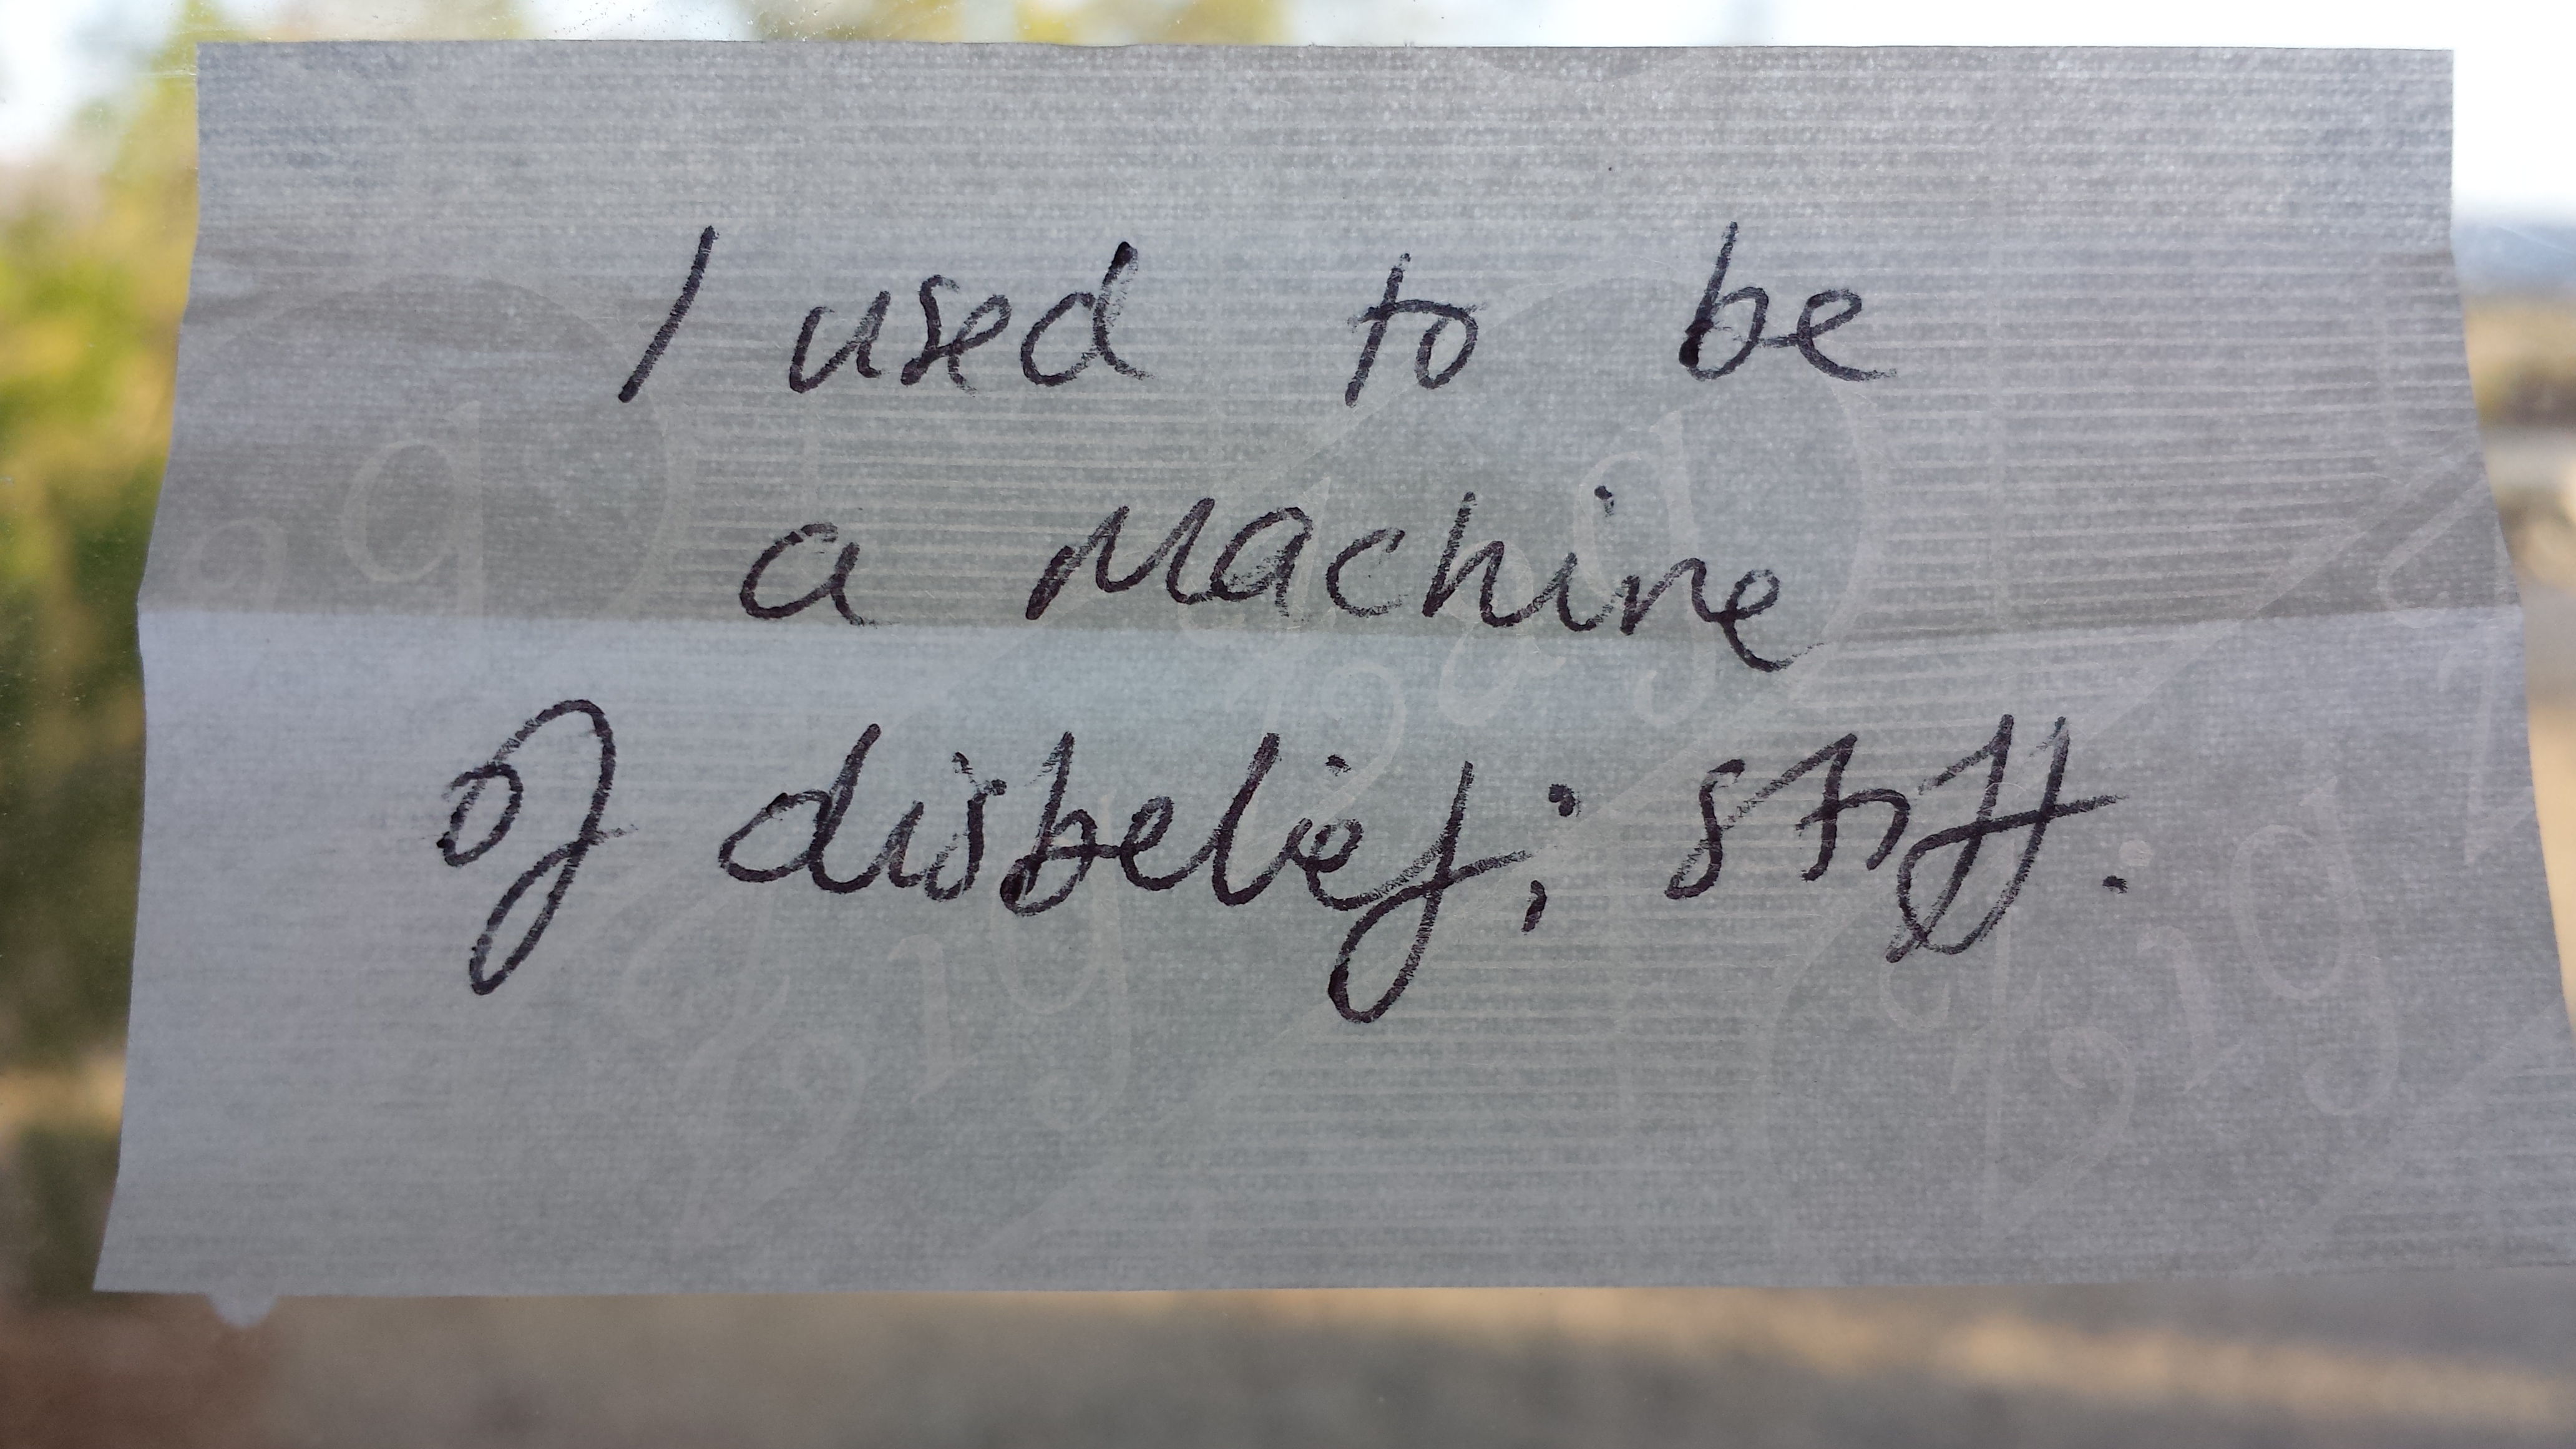 I used to be
a machine
of disbelief; stiff.